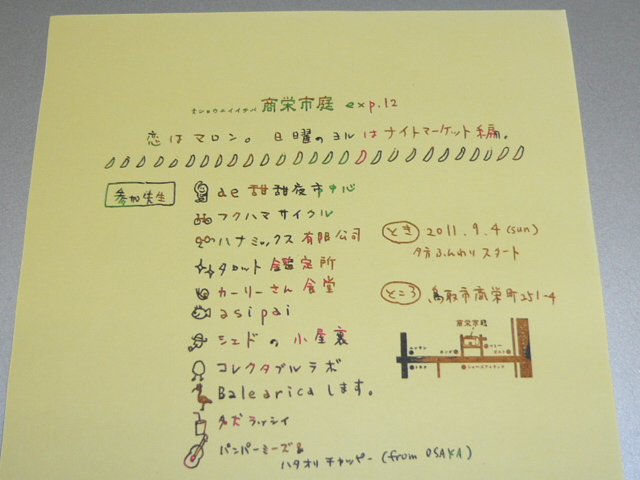 商栄市庭 exp.12
恋はマロン。 日曜のヨルはナイトマーケット編。
参加先生
ae 甜甜夜市中心
フクハマサイクル
ハナミックス有限公司
タロット鑑定所
カーリーさん食堂
asipai
シェドの小屋裏
コレクタブルラボ
Balearicaします。
ラッシィ
パンパーミーズ&
ハタオリチャッピー (from OSAKA)
とき 2011.9.4 (sun)
夕方ふんわりスタート
ところ 鳥取市商栄町251-4
商栄市庭